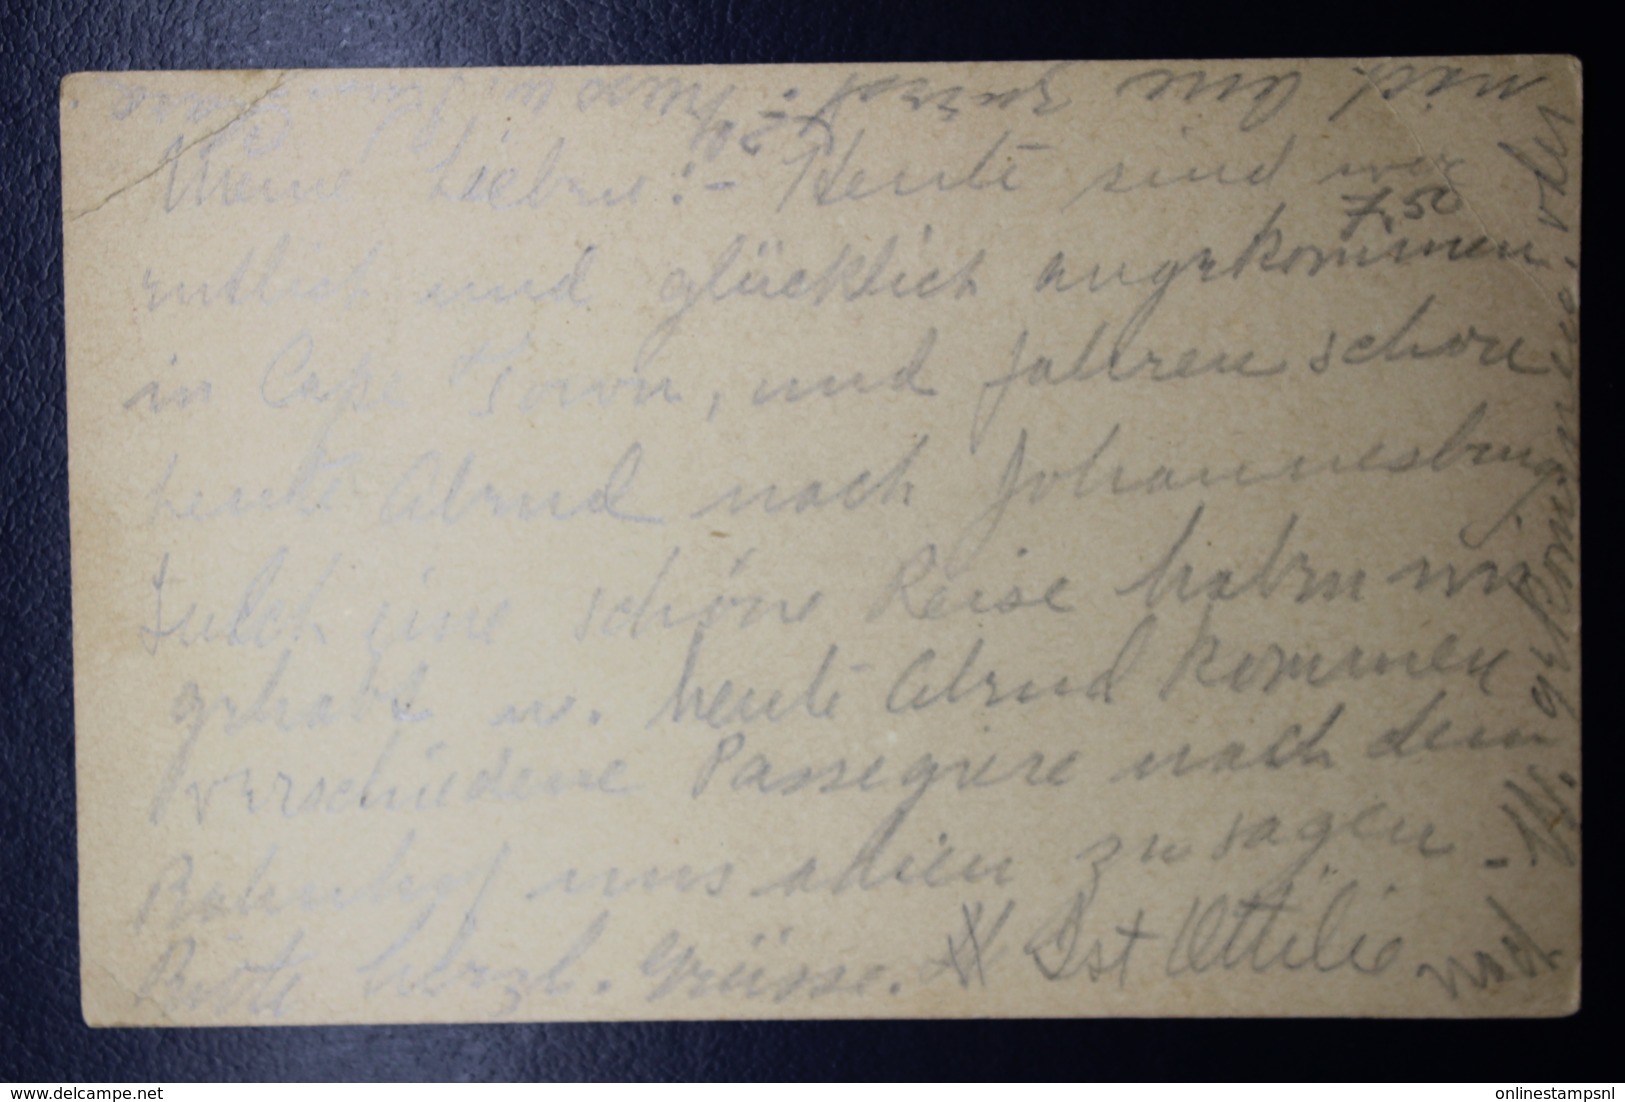 Meine Lieben! - Heute sind wir
7,50
entlich und glücklich angekommen
in Cape Town, und fahren schon
heute Abend nach Johannesburg
Sulch eine schöne Reise haben wir
gehabt u. heute Abend kommen
verschiedene Passegiere nach dem
Bahnhof uns adieu zu sagen -
Beste herzl. Grüsse. Ist Ottilie
noch
W. gekommen oder
nicht
onlinestampsnl